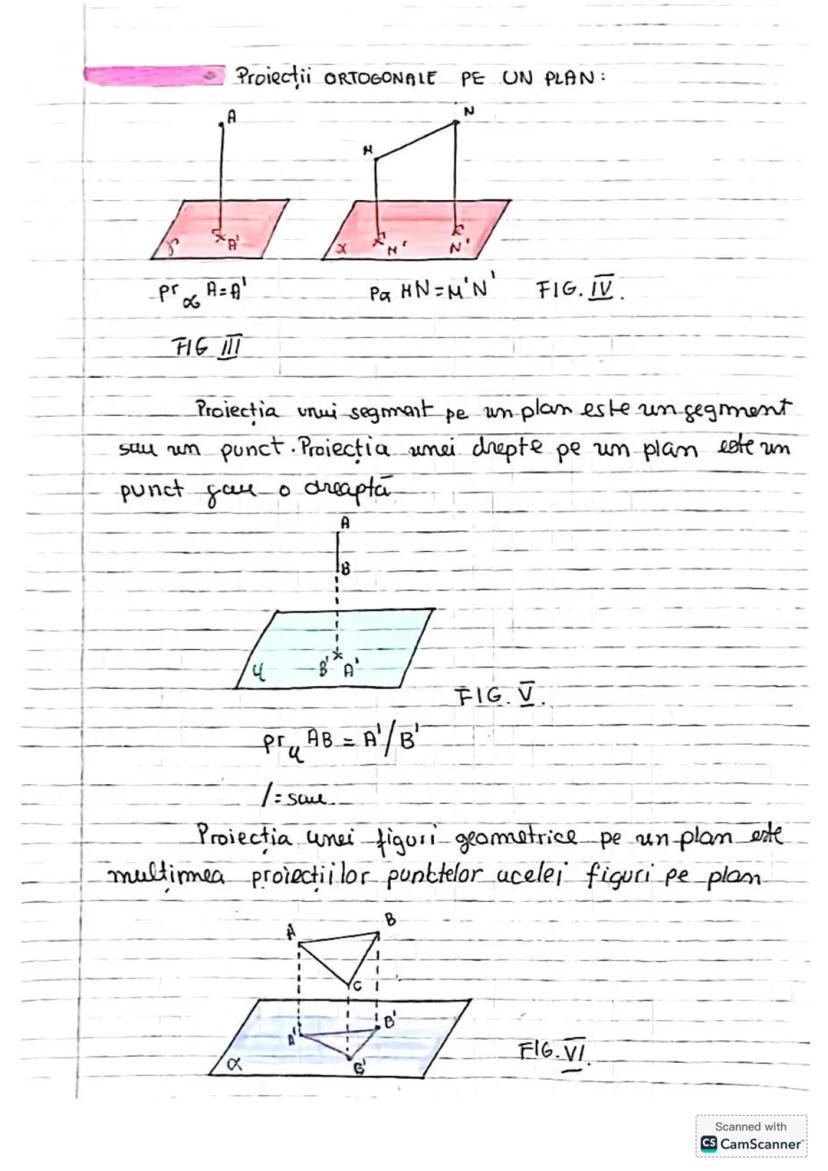 Proiecții ORTOGONALE PE UN PLAN:
A
N
M
γ
A'
α
M'
N'
pr α A=A'
Pα MN=M'N'
FIG. IV.
FIG III
Proiecția unui segment pe un plan este un segment
sau un punct. Proiecția unei drepte pe un plan este un
punct sau o dreaptă
A
B
B' A'
FIG. V.
AB = A'/B'
/= sau
Proiecția unei figuri geometrice pe un plan este
mulțimea proiecțiilor punctelor acelei figuri pe plan
A
B
C
A'
B'
α
FIG. VI.
Scanned with
CS CamScanner